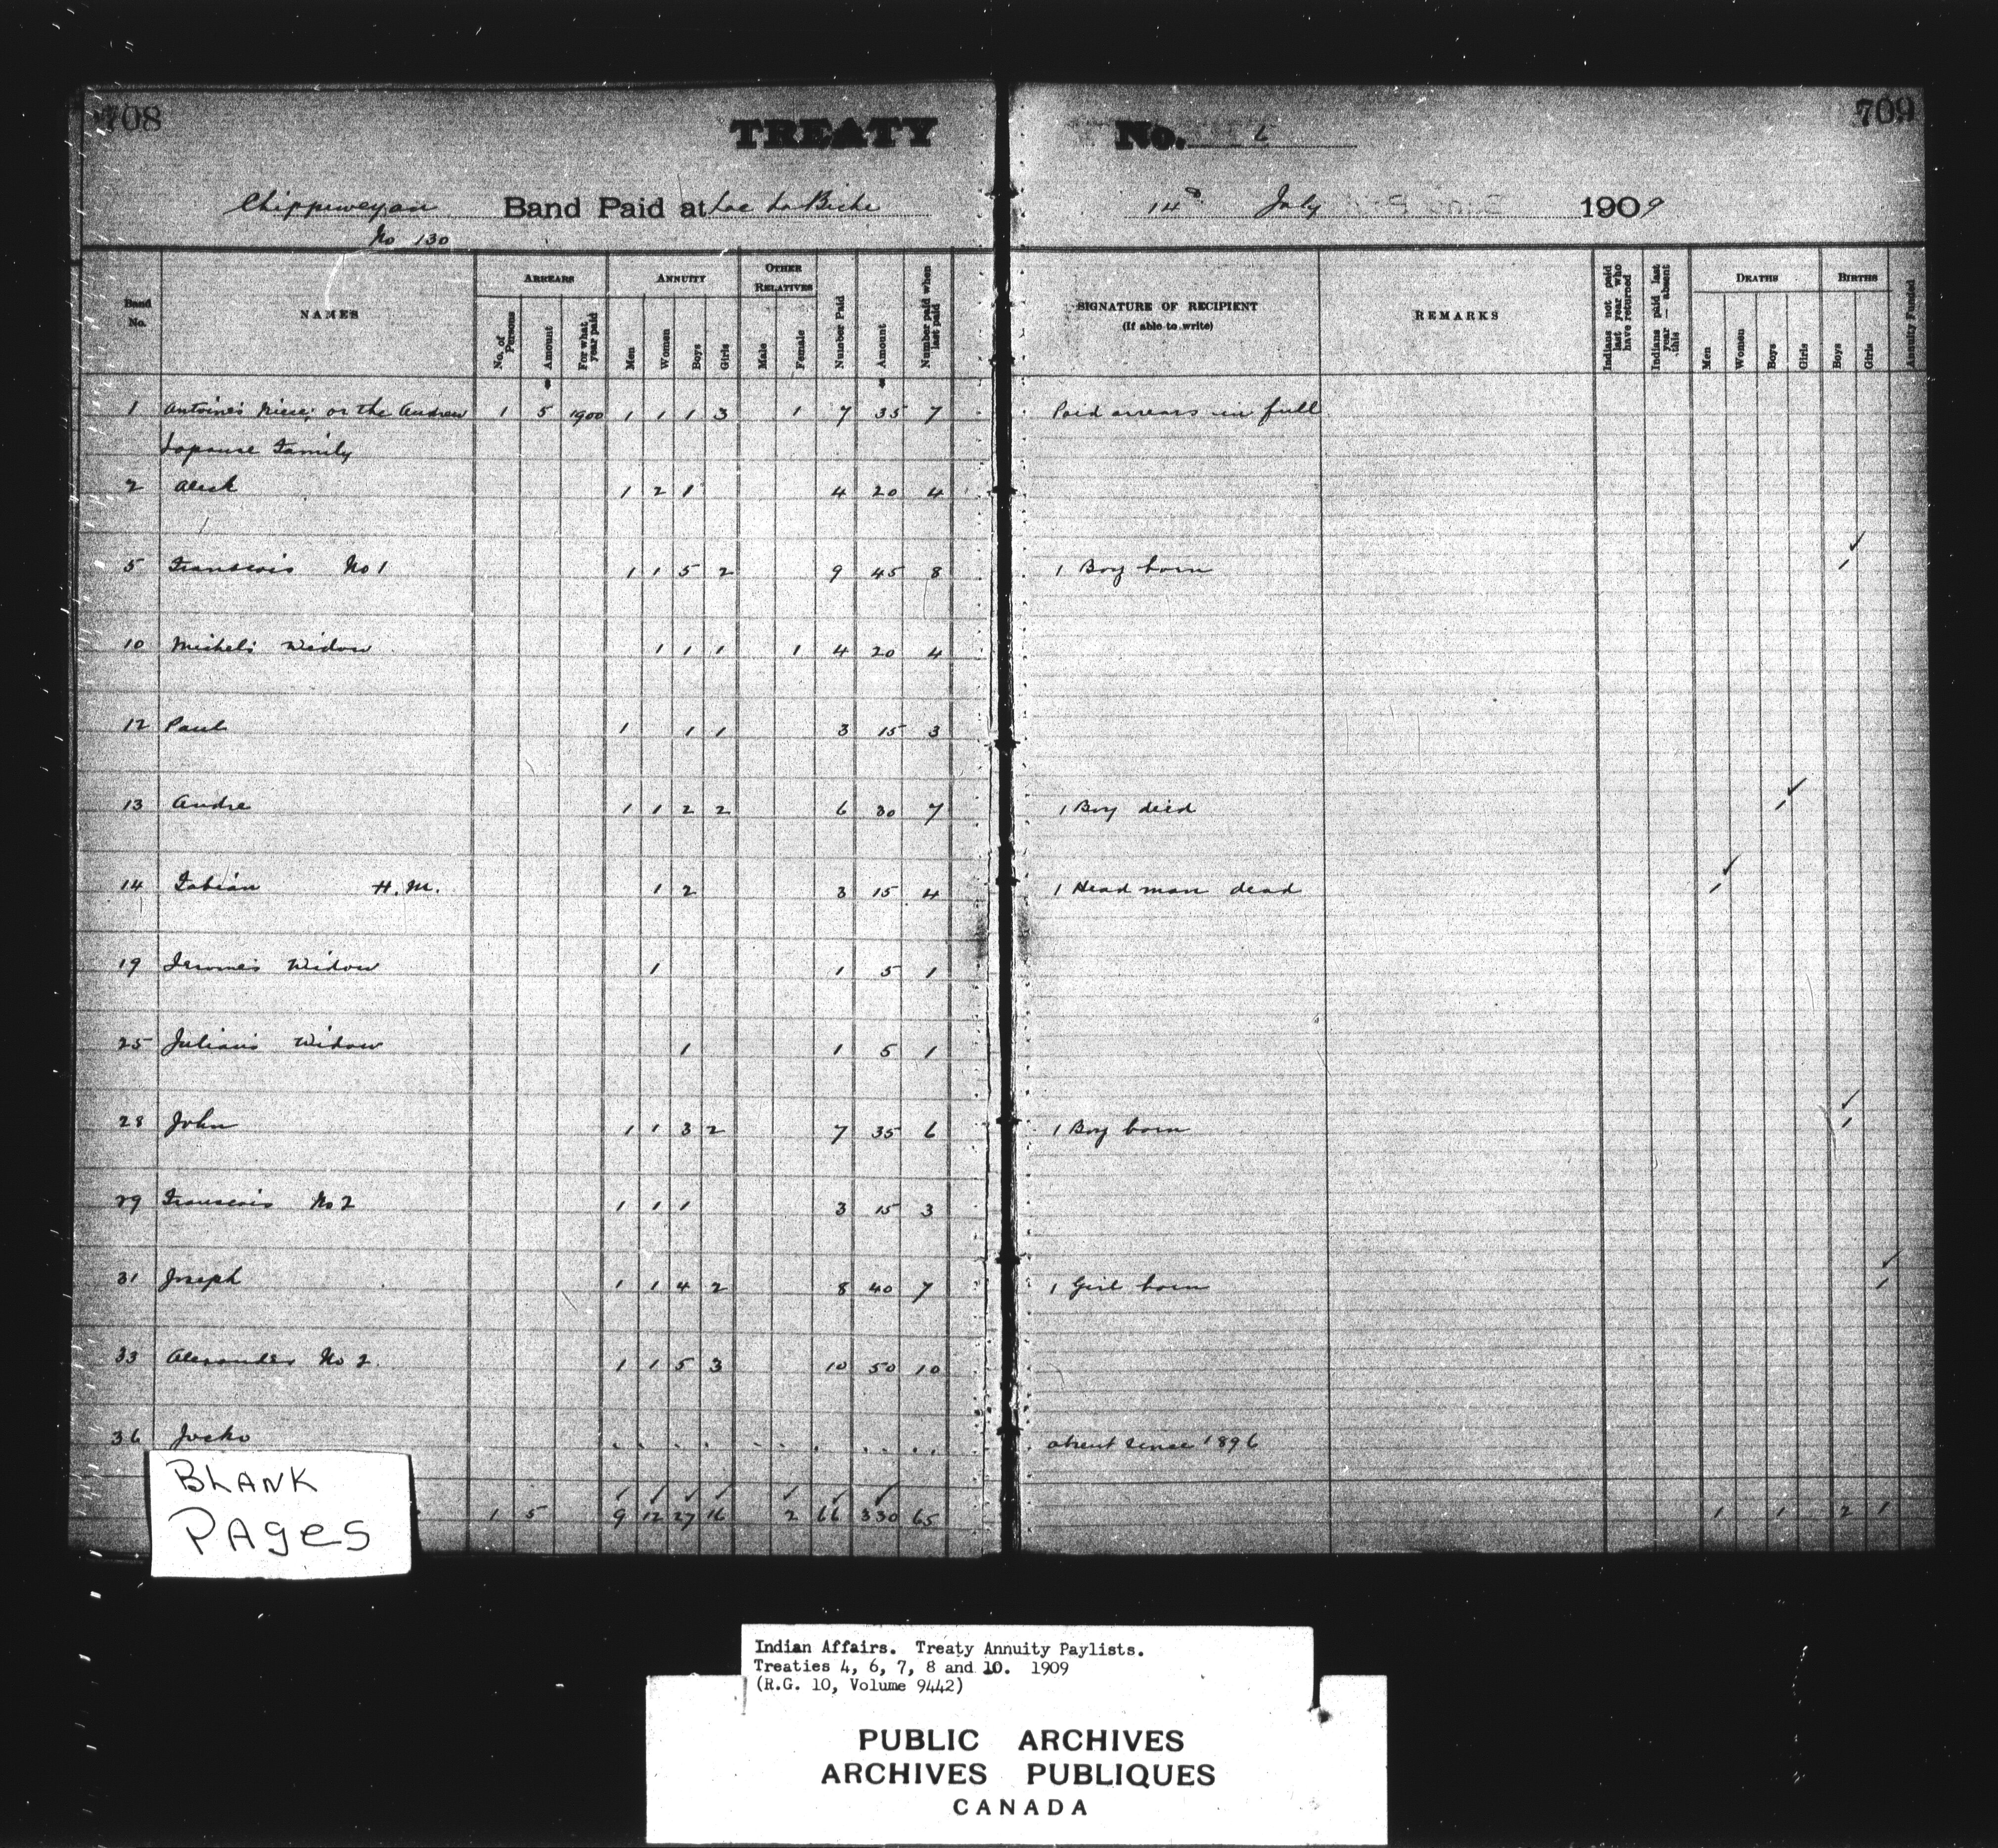 708
TREATY
Chippeweyan Band Paid at Lac La Biche
No 130
Band No. NAMES ARREARS No. of Persons Amount For what year paid ANNUITY Men Women Boys Girls OTHER RELATIVES Male Female Number Paid Amount Number paid when last paid
1 Antoine's Niece, or the Andrew 1 5 1900 1 1 1 3 1 7 35 7
Family
2 Aleck 1 2 1 4 20 4
5 Franscois No 1 1 1 5 2 9 45 8
10 Michel's Widow 1 1 1 1 4 20 4
12 Paul 1 1 1 3 15 3
13 Andre 1 1 2 2 6 30 7
14 Fabian H. M. 1 2 3 15 4
19 Jerome's Widow 1 1 5 1
25 Julian's Widow 1 1 5 1
28 John 1 1 3 2 7 35 6
29 Franscois No 2 1 1 1 3 15 3
31 Joseph 1 1 4 2 8 40 7
33 Alexander No 2. 1 1 5 3 10 50 10
36 Jocko
1 5 9 12 27 16 2 66 330 65
BLANK
PAges
709
No. 6
14th July 1909
SIGNATURE OF RECIPIENT
(If able to write)
REMARKS Indians not paid last year who have returned Indians paid last year — absent this DEATHS Men Women Boys Girls BIRTHS Boys Girls Annuity Funded
Paid arrears in full
1 Boy born 1
1 Boy died 1
1 Head man dead 1
1 Boy born 1
1 Girl born 1
absent since 1896
1 1 2 1
Indian Affairs. Treaty Annuity Paylists.
Treaties 4, 6, 7, 8 and 10. 1909
(R.G. 10, Volume 9442)
PUBLIC ARCHIVES
ARCHIVES PUBLIQUES
CANADA